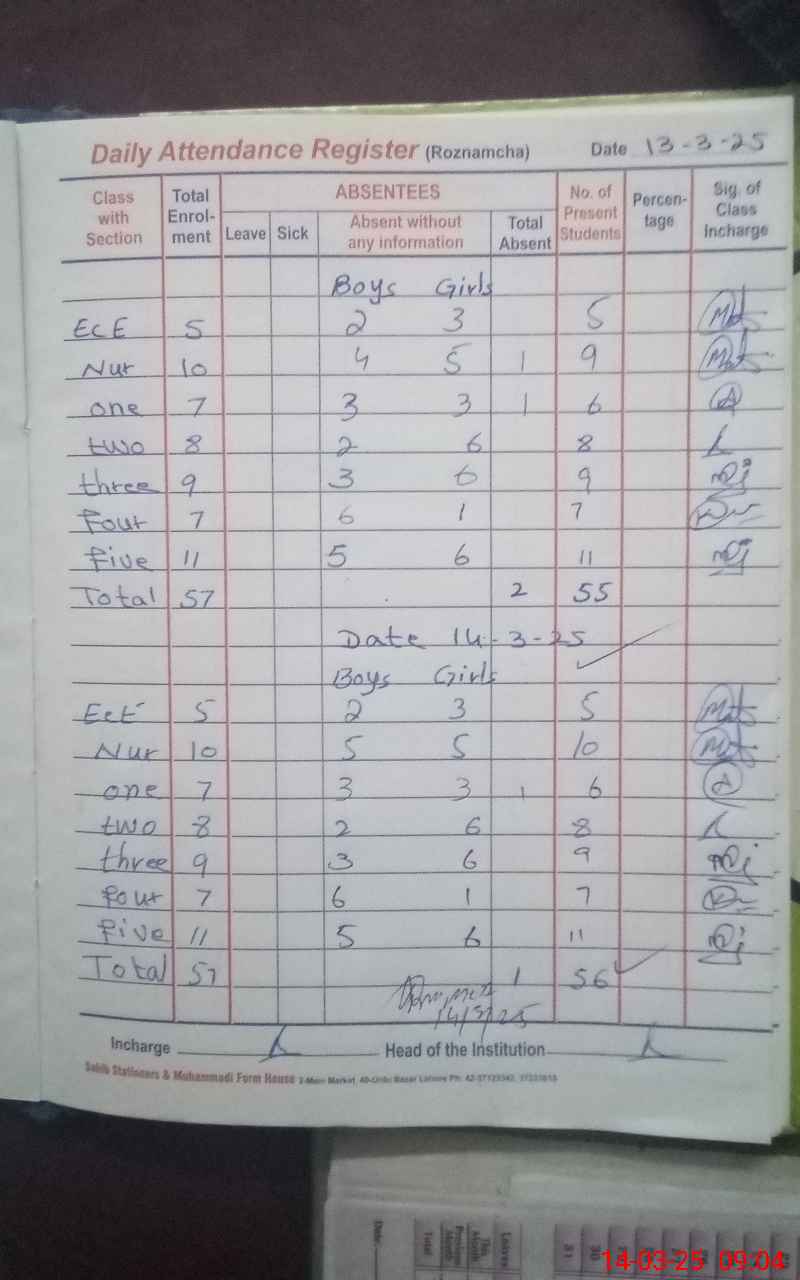 Daily Attendance Register (Roznamcha) Date 13-3-25
Class with Section Total Enrol-ment ABSENTEES No. of Present Students Percen-tage Sig. of Class Incharge
Leave Sick Absent without any information Total Absent
Boys Girls
ECE 5 2 3 5
Nur 10 4 5 1 9
one 7 3 3 1 6
two 8 2 6 8
three 9 3 6 9
Four 7 6 1 7
five 11 5 6 11
Total 57 2 55
Date 14-3-25
Boys Girls
EcE 5 2 3 5
Nur 10 5 5 10
one 7 3 3 1 6
two 8 2 6 8
three 9 3 6 9
four 7 6 1 7
five 11 5 6 11
Total 57 1 56
14/3/25
Incharge Head of the Institution
Sahib Stationers & Muhammadi Form House 2-Main Market, 40-Urdu Bazar Lahore Ph:
Date
Total
Previous Month
This Month
Leaves
31 30
14-03-25 09:04